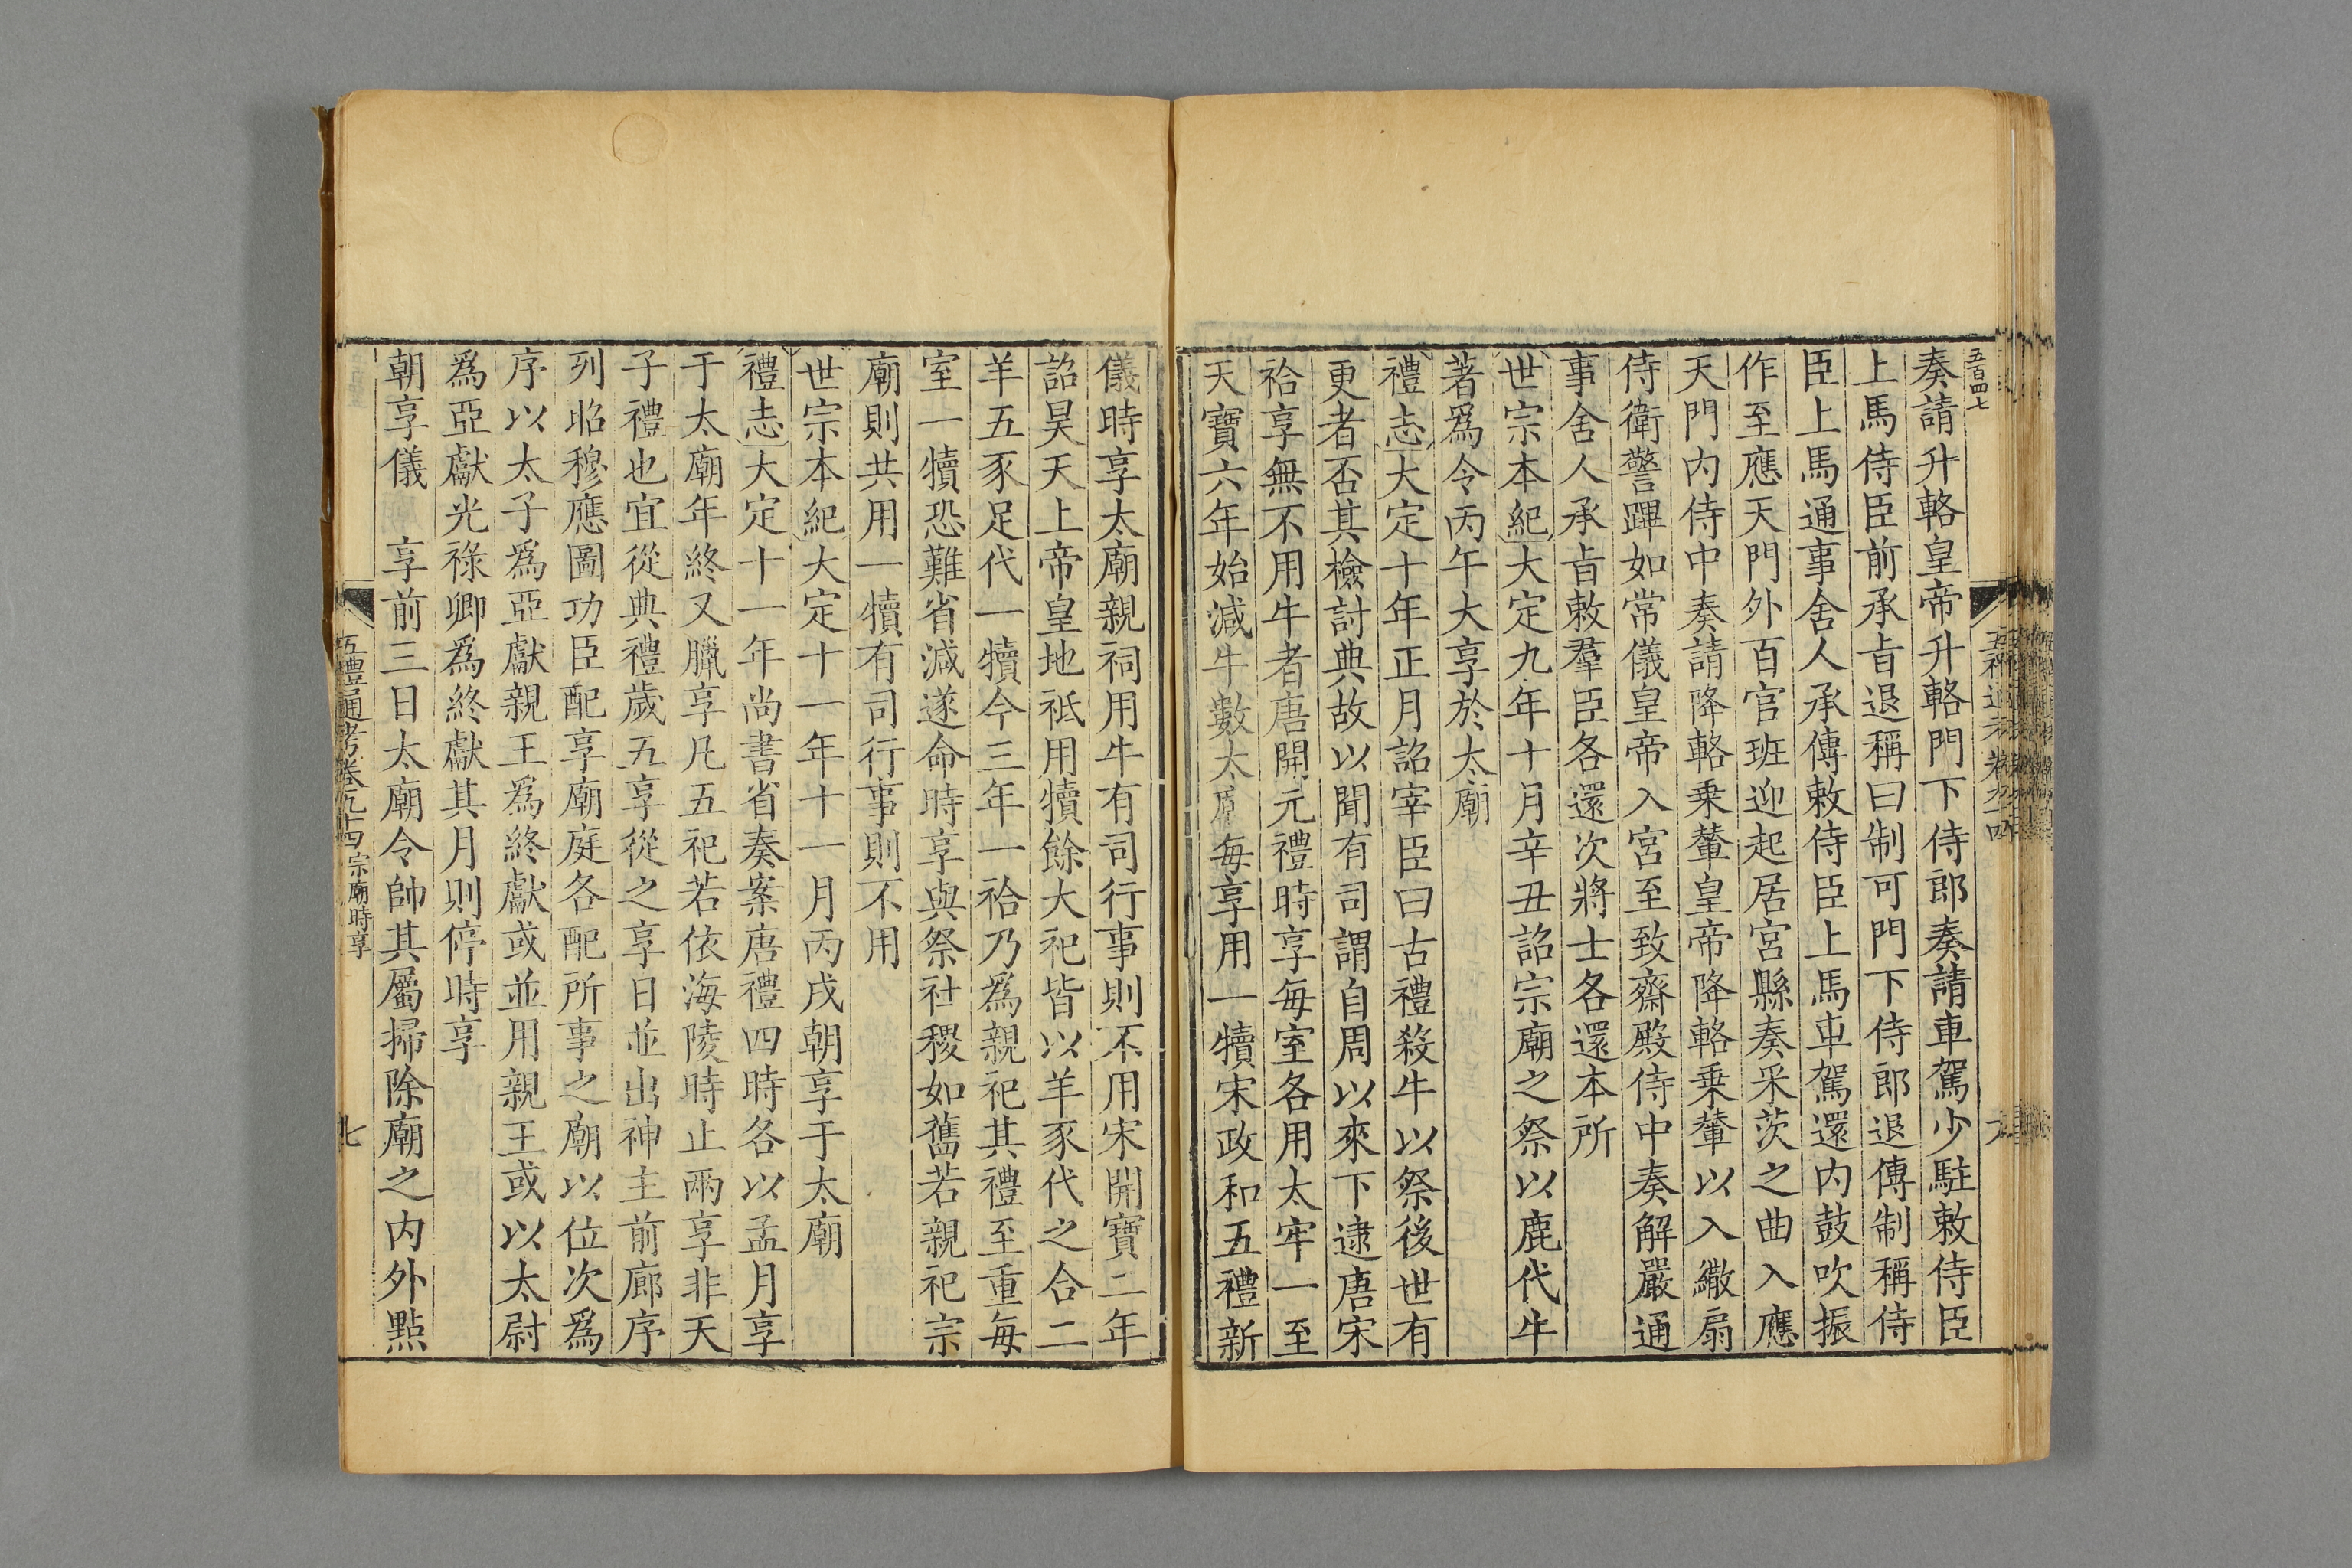 五百四七
奏請升輅皇帝升輅門下侍郎奏請車駕少駐敕侍臣
上馬侍臣前承旨退稱曰制可門下侍郎退傳制稱侍
臣上馬通事舍人承傳敕侍臣上馬車駕還內鼓吹振
作至應天門外百官班迎起居宮縣奏采茨之曲入應
天門內侍中奏請降輅乗輦皇帝降輅乗輦以入繖扇
侍衛警蹕如常儀皇帝入宮至致齋殿侍中奏解嚴通
事舍人承旨敕羣臣各還次將士各還本所
世宗本紀大定九年十月辛丑詔宗廟之祭以鹿代牛
著爲令丙午大享於太廟
禮志大定十年正月詔宰臣曰古禮殺牛以祭後世有
更者否其檢討典故以聞有司謂自周以來下逮唐宋
祫享無不用牛者唐開元禮時享每室各用太牢一至
天寶六年始減牛數太廟每享用一犢宋政和五禮新
儀時享太廟親祠用牛有司行事則不用宋開寶二年
詔昊天上帝皇地祇用犢餘大祀皆以羊豕代之合二
羊五豕足代一犢今三年一祫乃爲親祀其禮至重每
室一犢恐難省減遂命時享與祭社稷如舊若親祀宗
廟則共用一犢有司行事則不用
世宗本紀大定十一年十一月丙戌朝享于太廟
禮志大定十一年尚書省奏案唐禮四時各以孟月享
于太廟年終又臘享凡五祀若依海陵時止兩享非天
子禮也宜從典禮歲五享從之享日並出神主前廊序
列昭穆應圖功臣配享廟庭各配所事之廟以位次爲
序以太子爲亞獻親王爲終獻或並用親王或以太尉
爲亞獻光祿卿爲終獻其月則停時享
朝享儀　享前三日太廟令帥其屬掃除廟之內外點
五禮通考卷九十四宗廟時享
七